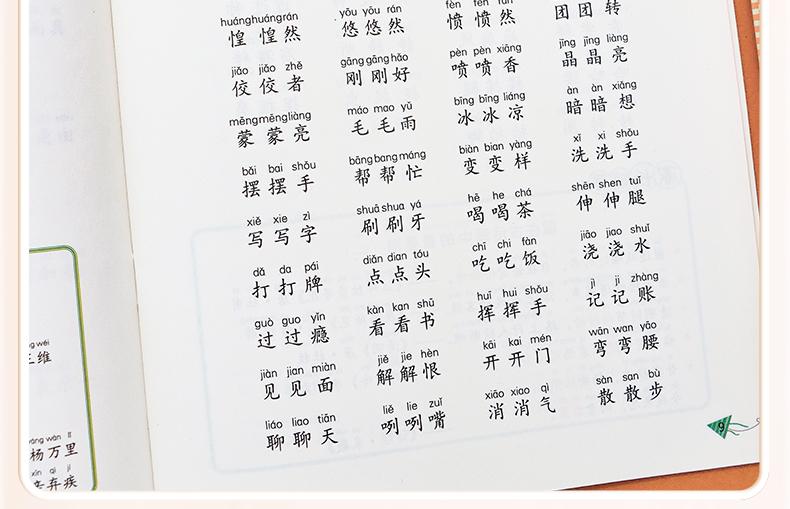 huánghuángrán yōu yōu rán fèn fèn rán
惶惶然 悠悠然 愤愤然 团团转
jiǎo jiǎo zhě gāng gāng hǎo pèn pèn xiāng jīng jīng liàng
佼佼者 刚刚好 喷喷香 晶晶亮
mēngmēngliàng máo mao yǔ bīng bīng liáng àn àn xiǎng
蒙蒙亮 毛毛雨 冰冰凉 暗暗想
bǎi bai shǒu bāng bang máng biàn bian yàng xǐ xi shǒu
摆摆手 帮帮忙 变变样 洗洗手
xiě xie zì shuā shua yá hē he chá shēn shen tuǐ
写写字 刷刷牙 喝喝茶 伸伸腿
dǎ da pái diǎn dian tóu chī chi fàn jiāo jiao shuǐ
打打牌 点点头 吃吃饭 浇浇水
guò guo yǐn kàn kan shū huī hui shǒu jì ji zhàng
过过瘾 看看书 挥挥手 记记账
jiàn jian miàn jiě jie hèn kāi kai mén wān wan yāo
见见面 解解恨 开开门 弯弯腰
liáo liao tiān liě lie zuǐ xiāo xiao qì sàn san bù
聊聊天 咧咧嘴 消消气 散散步
wéi
三维
yáng wàn lǐ
杨万里
xīn qì jí
辛弃疾
9